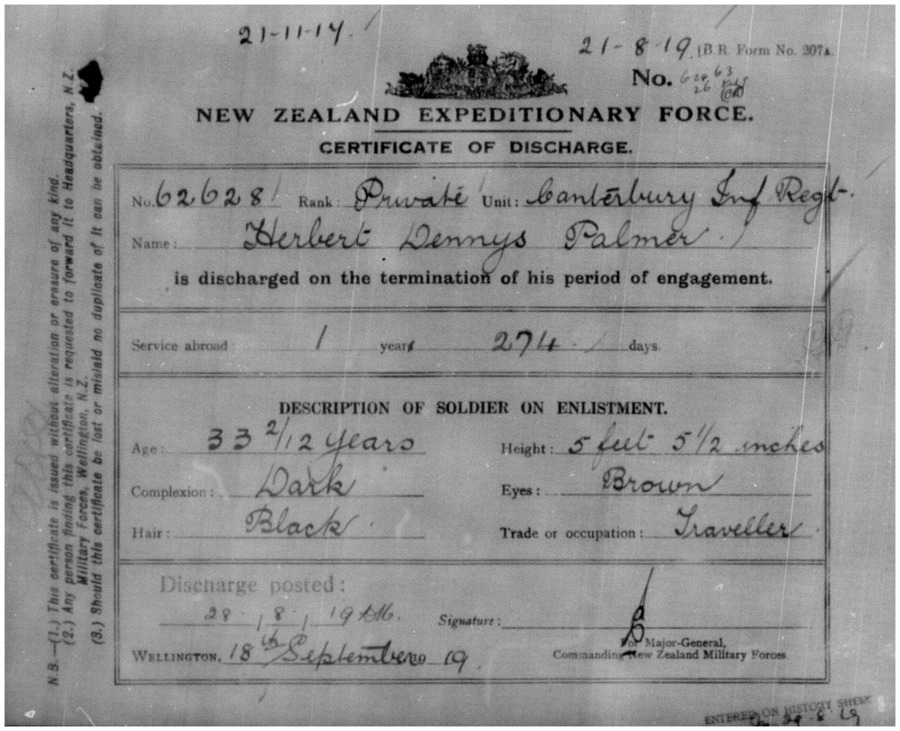 21-11-17.
21-8-19. (B.R. Form No. 207A.
No. 62963
26
NEW ZEALAND EXPEDITIONARY FORCE.
CERTIFICATE OF DISCHARGE.
No. 62628 Rank: Private Unit: Canterbury Inf Regt.
Name: Herbert Dennys Palmer
is discharged on the termination of his period of engagement.
Service abroad: 1 years 274 days.
DESCRIPTION OF SOLDIER ON ENLISTMENT.
Age: 33 2/12 years Height: 5 feet 5 1/2 inches
Complexion: Dark Eyes: Brown
Hair: Black Trade or occupation: Traveller
Discharge posted:
28, 8, 19
Signature:
WELLINGTON, 18th September 19.
For Major-General,
Commanding New Zealand Military Forces
ENTERED ON HISTORY SHEET
29-8-19
N.B.—(1.) This certificate is issued without alteration or erasure of any kind.
(2.) Any person finding this certificate is requested to forward it to Headquarters, N.Z.
Military Forces, Wellington, N.Z.
(3.) Should this certificate be lost or mislaid no duplicate of it can be obtained.